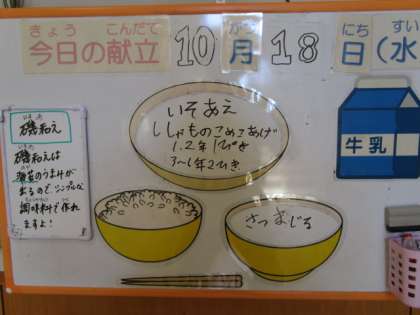 きょう こんだて がつ にち すい
今日の献立 10月18日(水
いそあえ
ししゃものこめこあげ
1.2年1ぴき
3〜6年2ひき
牛乳
磯和え
磯和えは
海藻のうまみが
出るので、シンプルな
調味料で作れ
ますよ!
さつまじる